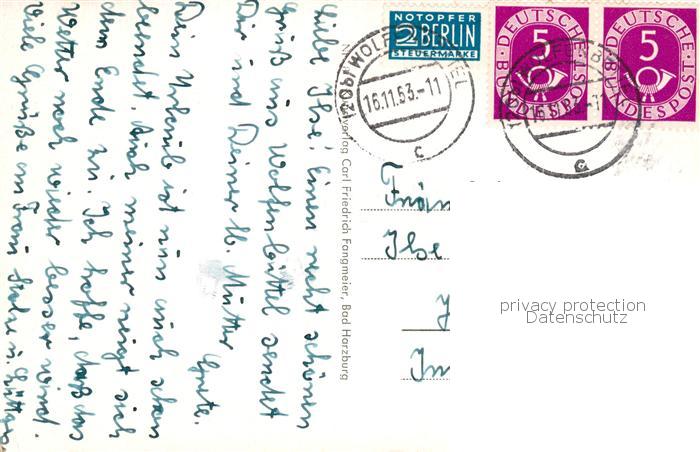 Liebe Ilse! Einen recht schönen
Gruß aus Wolfenbüttel sendet
Dir und Deiner lb. Mutter
Grete.
Dein Urlaub ist nun auch schon
beendet. Auch meiner neigt sich
dem Ende zu. Ich hoffe, daß das
Wetter noch wieder besser wird.
Viele Grüße an Frau
Verlag Carl Friedrich Fangmeier, Bad Harzburg
NOTOPFER
2 BERLIN
STEUERMARKE
DEUTSCHE
BUNDESPOST
5
DEUTSCHE
BUNDESPOST
5
WOLFENBÜTTEL
16.11.53.-11
c
c
Ilse
privacy protection
Datenschutz